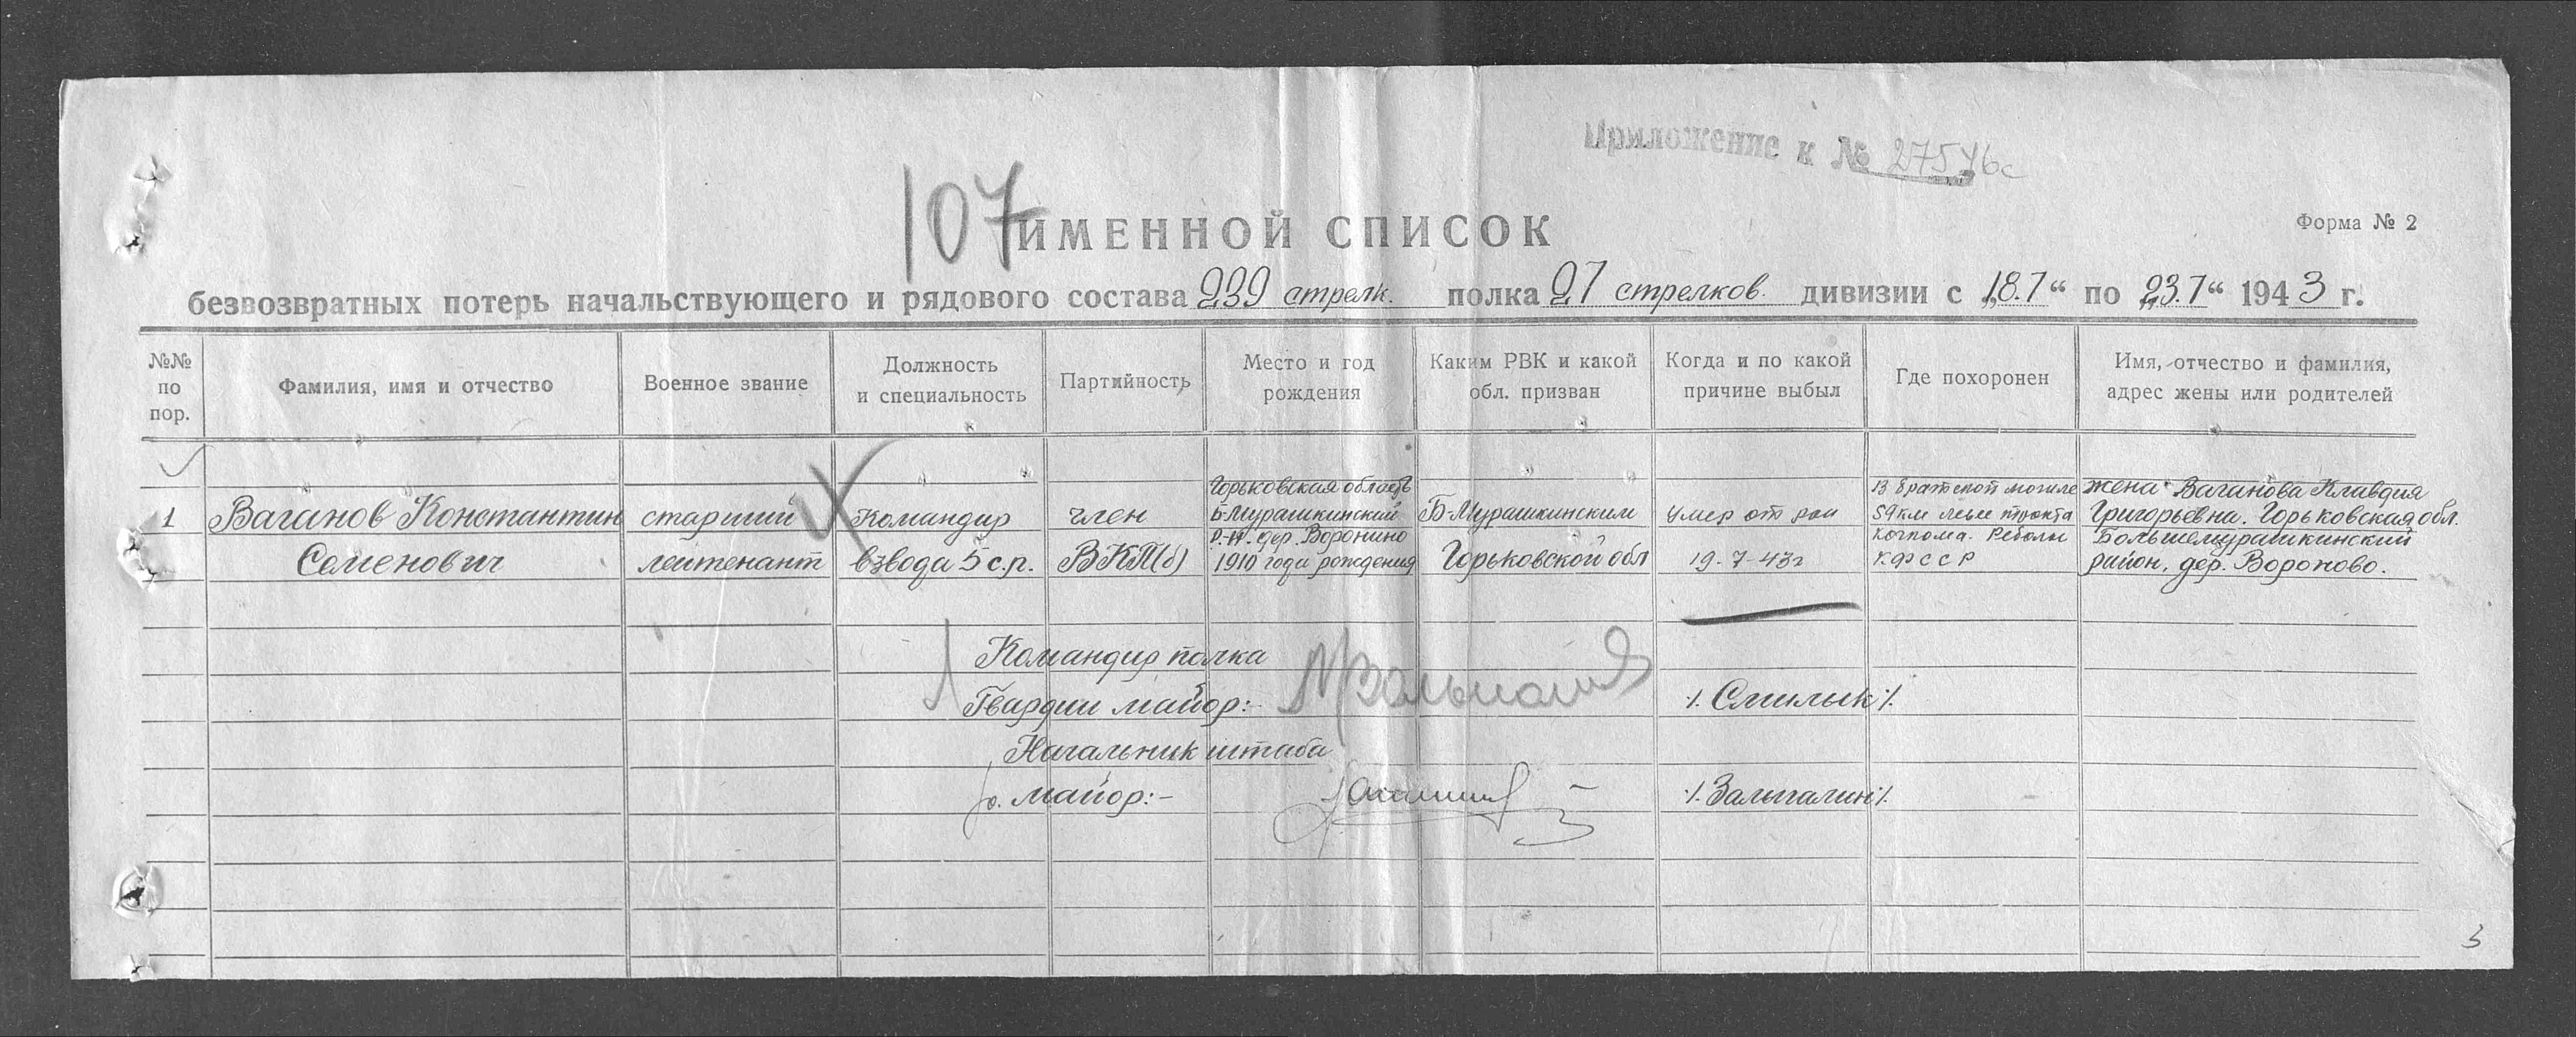 Приложение к № 27546с
107
ИМЕННОЙ СПИСОК
Форма № 2
безвозвратных потерь начальствующего и рядового состава 239 стрелк. полка 27 стрелков. дивизии с „18.7“ по „23.7“ 1943 г.
№№ по пор.
Фамилия, имя и отчество
Военное звание
Должность и специальность
Партийность
Место и год рождения
Каким РВК и какой обл. призван
Когда и по какой причине выбыл
Где похоронен
Имя, отчество и фамилия, адрес жены или родителей
1
Ваганов Константин
Семенович
старший
лейтенант
Командир
взвода 5 с.р.
член
ВКП(б)
Горьковская область
Б-Мурашкинский
р-н. дер. Воронино
1910 года рождения
Б-Мурашкинским
Горьковской обл
Умер от ран
19-7-43г
В братской могиле
59км
Кочкома-Реболы
К.Ф С С Р
жена Ваганова Клавдия
Григорьевна. Горьковская обл.
Большемурашкинский
район, дер. Вороново.
Командир полка
Гвардии майор:-
Смилык
Начальник штаба
майор:-
Залыгалин
3